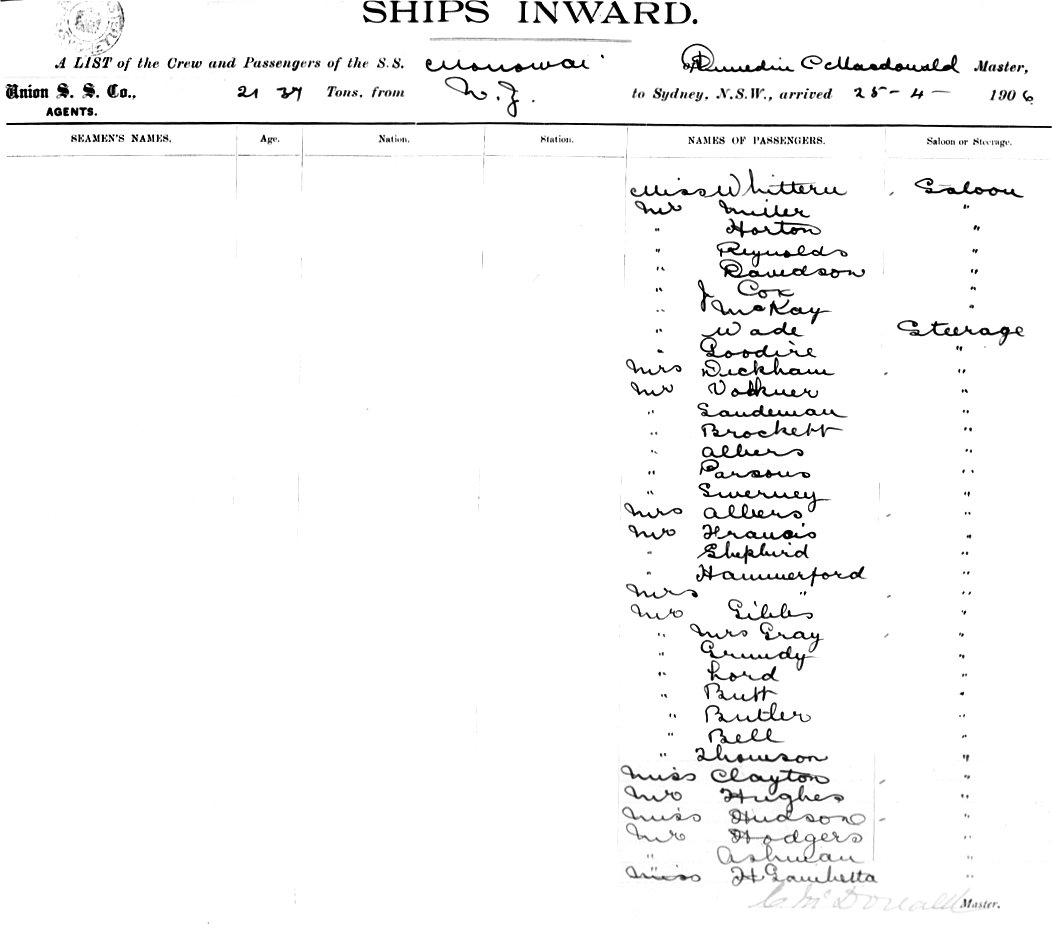 SHIPS INWARD.
A LIST of the Crew and Passengers of the S.S. Monowai Dunedin C Macdonald Master,
Union S. S. Co., 21 37 Tons, from N. Z. to Sydney, N.S.W., arrived 25 - 4 - 1906
AGENTS.
SEAMEN'S NAMES. Age. Nation. Station. NAMES OF PASSENGERS. Saloon or Steerage.
Miss Whittem Saloon
Mr Miller "
" Horton "
" Reynolds "
" Davidson "
" J Cox "
" McKay "
" Wade Steerage
" Goodire "
Mrs Wickham "
Mr Volkner "
" Sandeman "
" Brockett "
" Albers "
" Parsons "
" Swerney "
Mrs Albers "
Mr Francis "
" Shepherd "
" Hammerford "
Mrs " "
Mr Gibbs "
" Mrs Gray "
" Grundy "
" Lord "
" Butt "
" Butler "
" Bell "
" Thomson "
Miss Clayton "
Mr Hughes "
Miss Hudson "
Mr Hodgers "
" Ashman "
Miss H Gambetta "
C. McDonald Master.